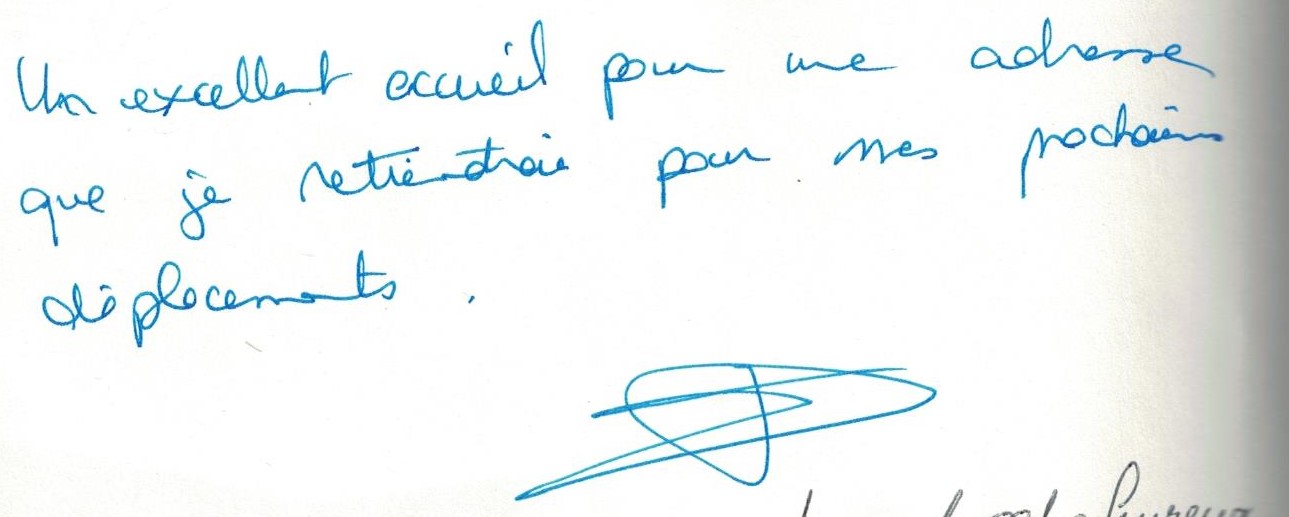 Un excellent accueil pour une adresse
que je retiendrais pour mes prochains
déplacements.